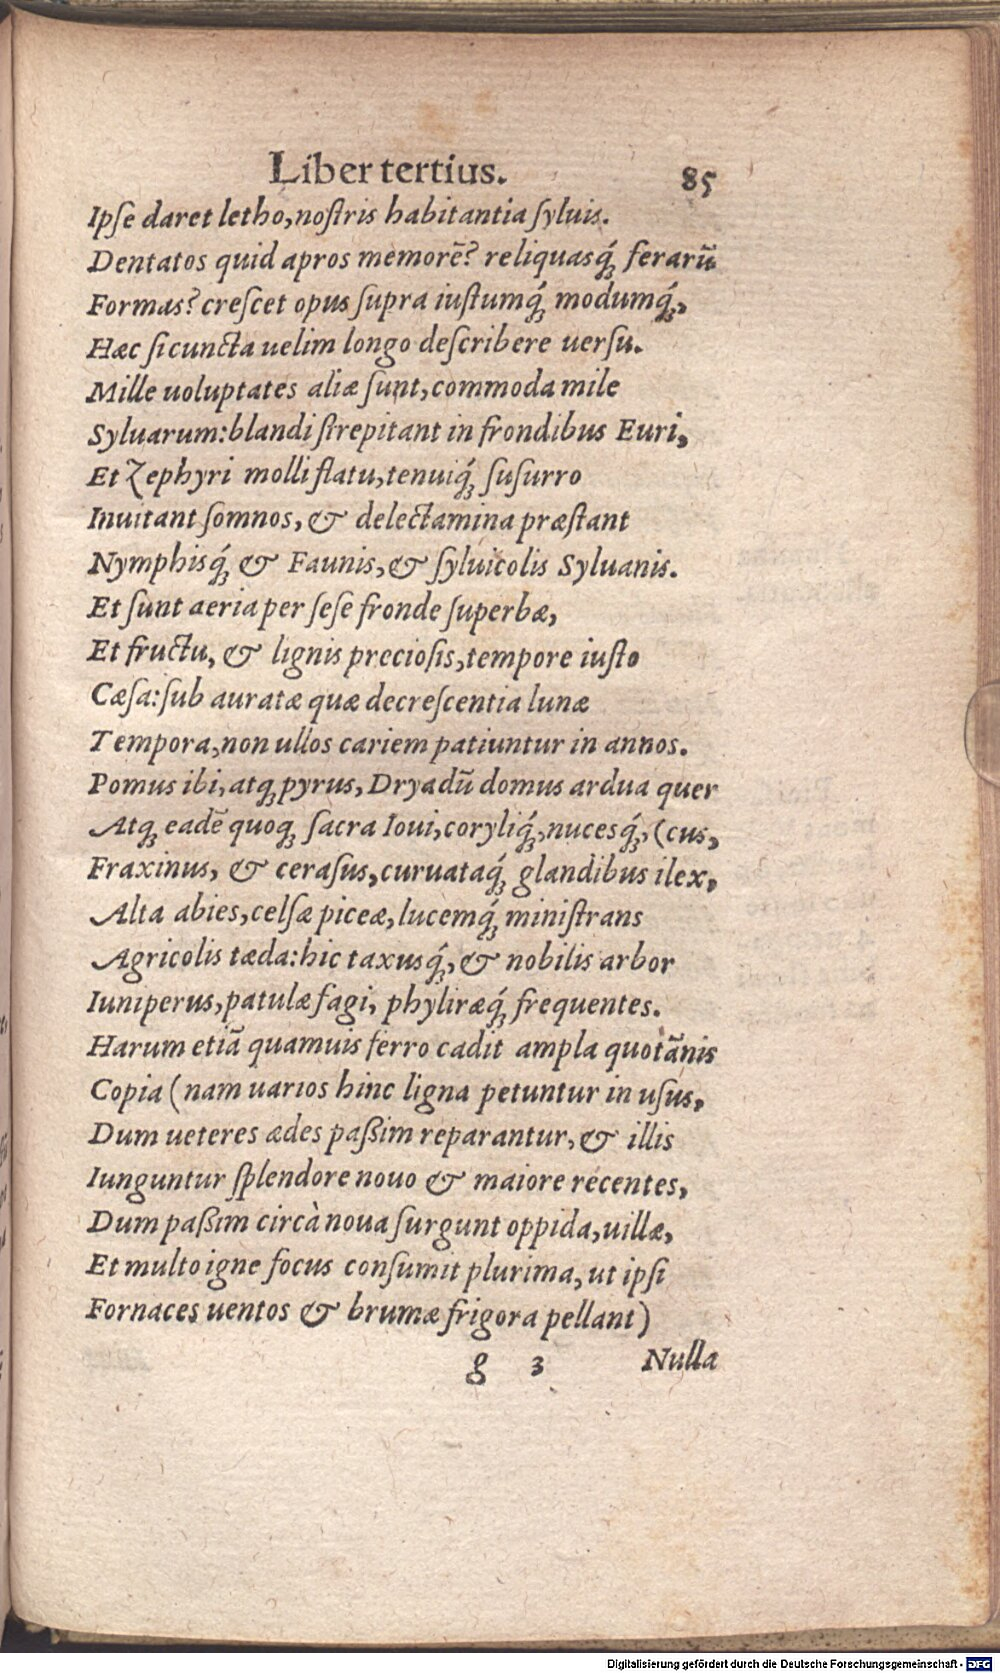 Liber tertius. 85
Ipſe daret letho, noſtris habitantia ſyluis.
Dentatos quid apros memorē? reliquasq́; ferarū
Formas? creſcet opus ſupra iuſtumq́; modumq́;,
Hæc ſi cuncta uelim longo deſcribere uerſu.
Mille uoluptates aliæ ſunt, commoda mile
Syluarum: blandi ſtrepitant in frondibus Euri,
Et Zephyri molli flatu, tenuiq́; ſuſurro
Inuitant ſomnos, & delectamina præſtant
Nymphisq́; & Faunis, & ſyluicolis Syluanis.
Et ſunt aeria per ſeſe fronde ſuperbæ,
Et fructu, & lignis precioſis, tempore iuſto
Cæſa: ſub auratæ quæ decreſcentia lunæ
Tempora, non ullos cariem patiuntur in annos.
Pomus ibi, atq; pyrus, Dryadū domus ardua quer
Atq; eadē quoq; ſacra Ioui, coryliq́;, nucesq́;, (cus,
Fraxinus, & ceraſus, curuataq́; glandibus ilex,
Alta abies, celſæ piceæ, lucemq́; miniſtrans
Agricolis tæda: hic taxusq́;, & nobilis arbor
Iuniperus, patulæ fagi, phyliræq́; frequentes.
Harum etiā quamuis ferro cadit ampla quotānis
Copia (nam uarios hinc ligna petuntur in uſus,
Dum ueteres ædes paßim reparantur, & illis
Iunguntur ſplendore nouo & maiore recentes,
Dum paßim circà noua ſurgunt oppida, uillæ,
Et multo igne focus conſumit plurima, ut ipſi
Fornaces uentos & brumæ frigora pellant)
g 3 Nulla
Digitalisierung gefördert durch die Deutsche Forschungsgemeinschaft - DFG